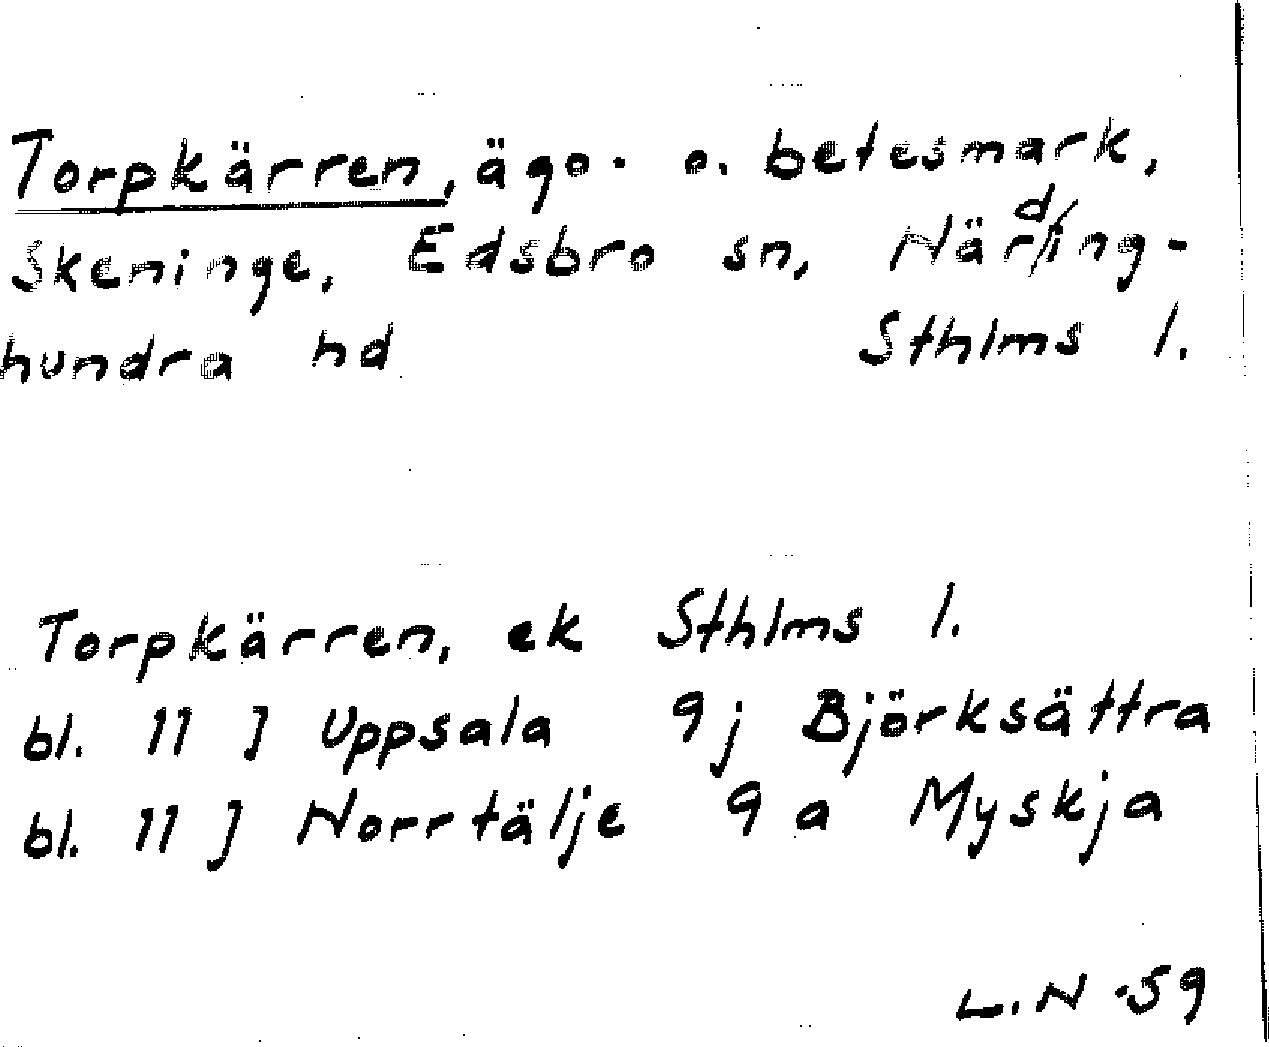 Torpkärren, ägo- o. betesmark,
Skeninge, Edsbro sn, Närding-
hundra hd Sthlms l.
Torpkärren, ek Sthlms l.
bl. 11 J Uppsala 9j Björksättra
bl. 11 J Norrtälje 9a Myskja
L.N -59